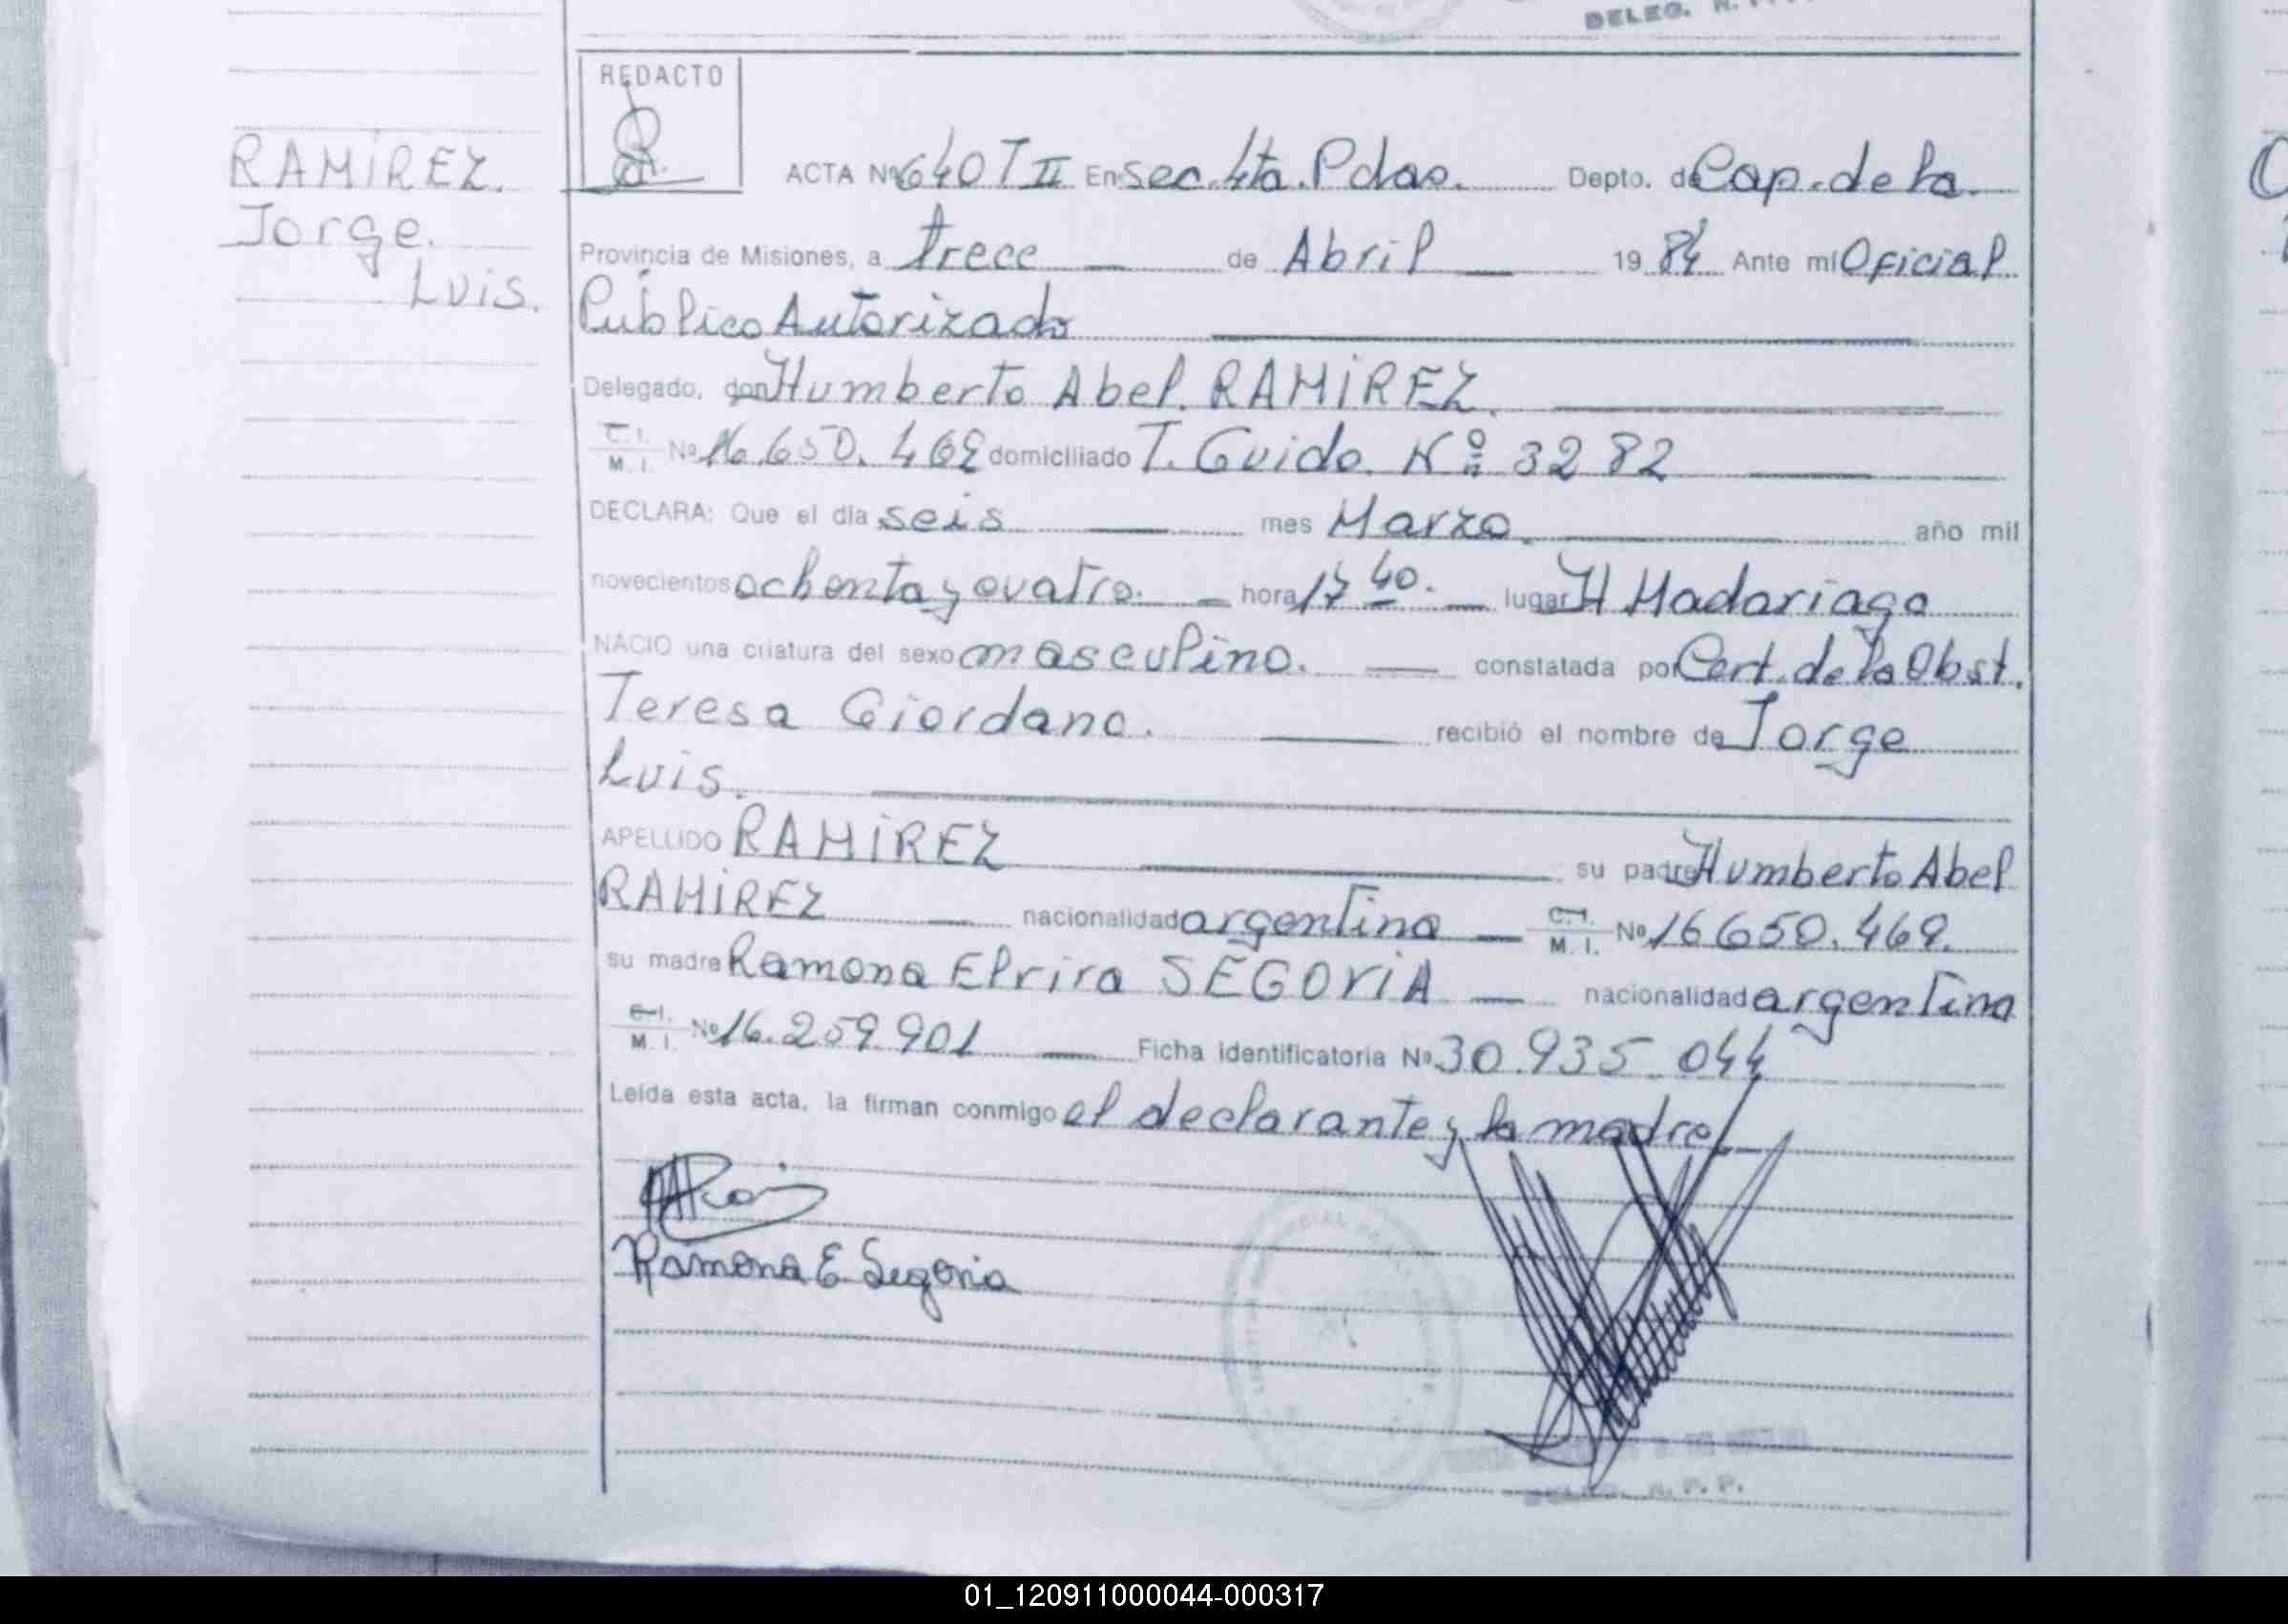 DELEG. N.
REDACTO
RAMÍREZ.
Jorge.
Luis.
ACTA Nº 640 T II En Sec. 4ta. Pdas. Depto. de Cap. de la.
Provincia de Misiones, a trece de Abril 19 84 Ante mí Oficial
Público Autorizado
Delegado, don Humberto Abel. RAMÍREZ.
C. I. M. I. Nº 16.650.469 domiciliado T. Guido. Nº 3282
DECLARA: Que el día seis mes Marzo. año mil
novecientos ochenta y cuatro. hora 17 40. lugar H Madariaga
NACIO una criatura del sexo masculino. constatada por Cert. de la Obst.
Teresa Giordano. recibió el nombre de Jorge
Luis.
APELLIDO RAMÍREZ su padre Humberto Abel
RAMÍREZ nacionalidad argentina C. I. M. I. Nº 16650.469.
su madre Ramona Elvira SEGOVIA nacionalidad argentina
C. I. M. I. Nº 16.259.901 Ficha identificatoria Nº 30.935.044
Leída esta acta, la firman conmigo el declarante y la madre
Ramona E Segovia
01_120911000044-000317